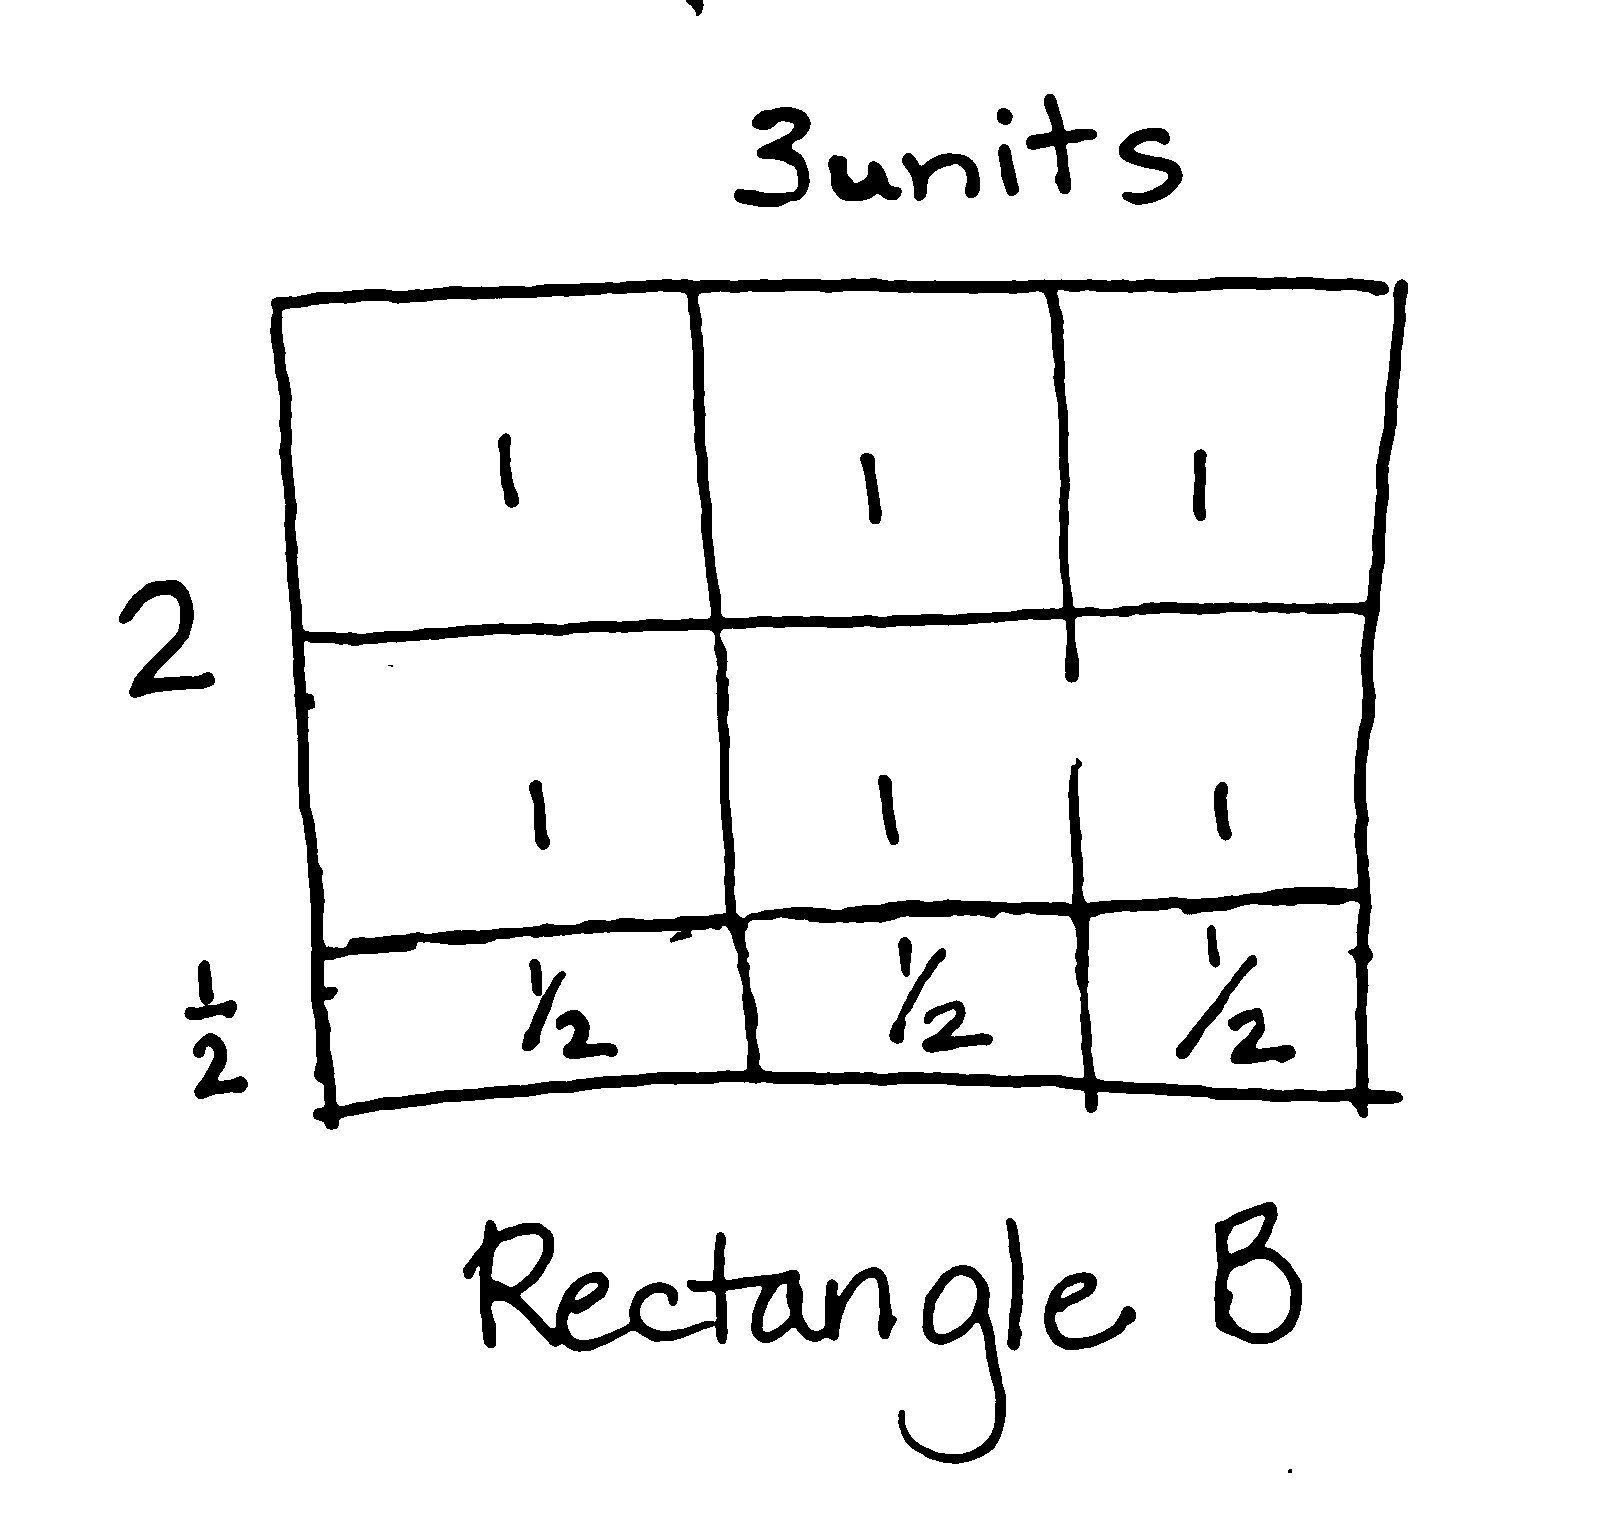 3 units
1 1 1
2
1 1 1
1/2 1/2 1/2 1/2
Rectangle B